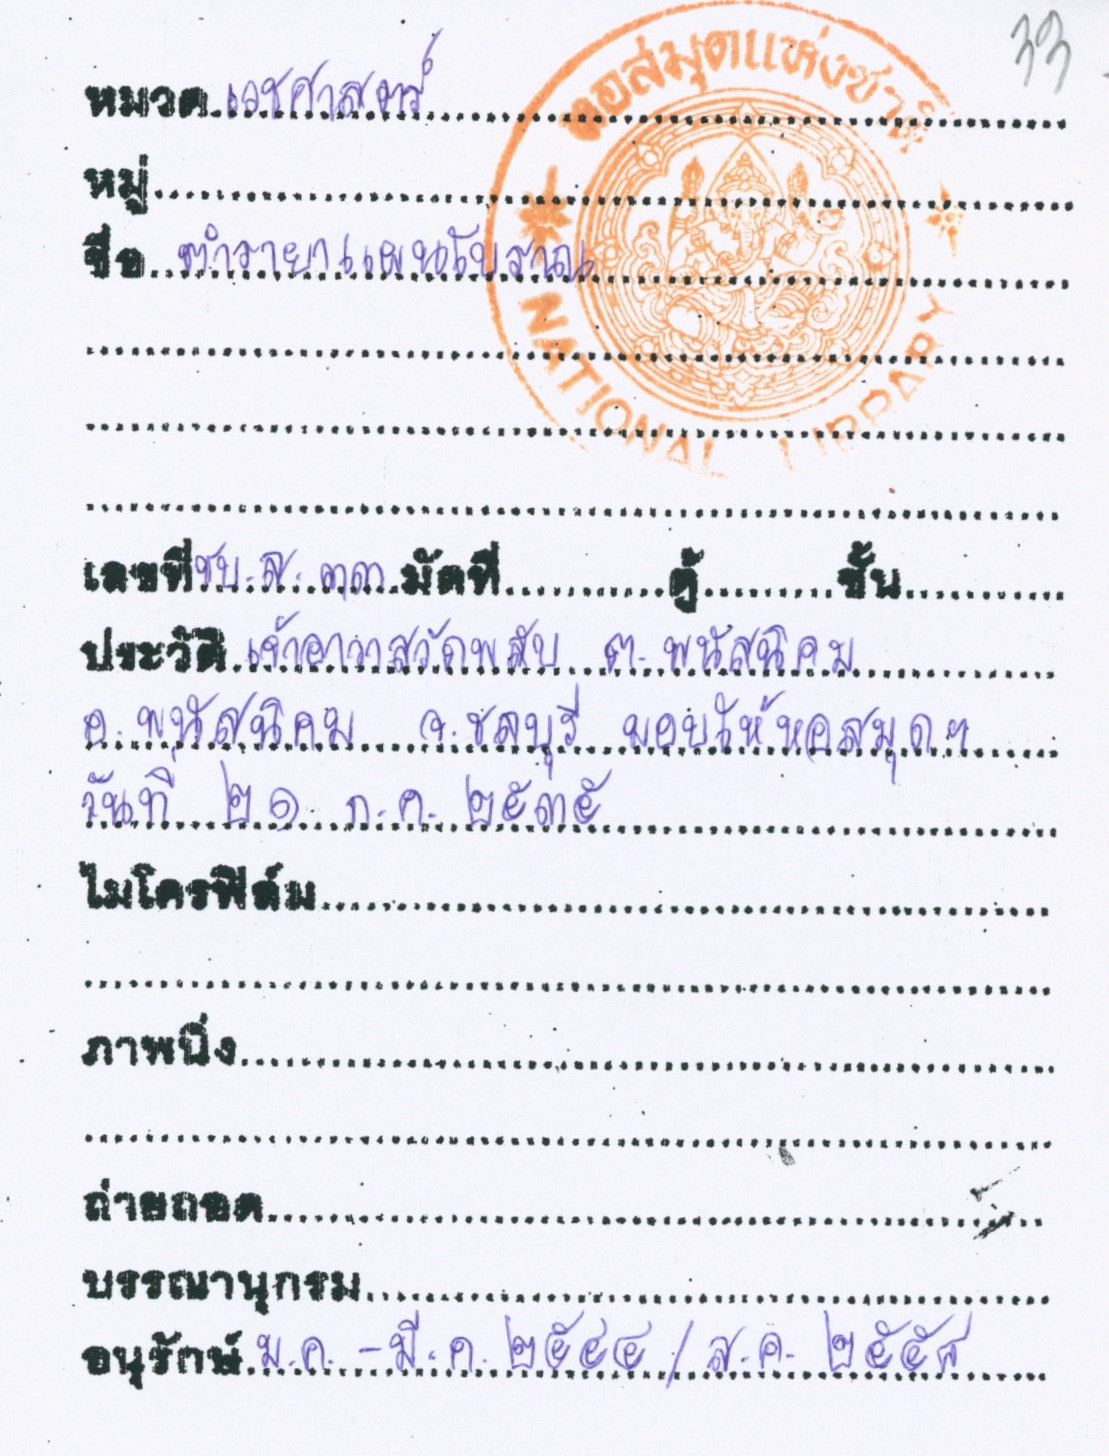 33
หอสมุดแห่งชาติ
NATIONAL LIBRARY
หมวด เวชศาสตร์
หมู่
ชื่อ ตำรายาแผนโบราณ
เลขที่ ชบ.ส. ๓๓ มัดที่ ตู้ ชั้น
ประวัติ เจ้าอาวาสวัดพลับ ต. พนัสนิคม
อ. พนัสนิคม จ. ชลบุรี มอบให้หอสมุดฯ
วันที่ ๒๑ ก.ค. ๒๕๓๕
ไมโครฟิล์ม
ภาพนิ่ง
ถ่ายถอด
บรรณานุกรม
อนุรักษ์ ม.ค. - มี.ค. ๒๕๔๔ / ส.ค.